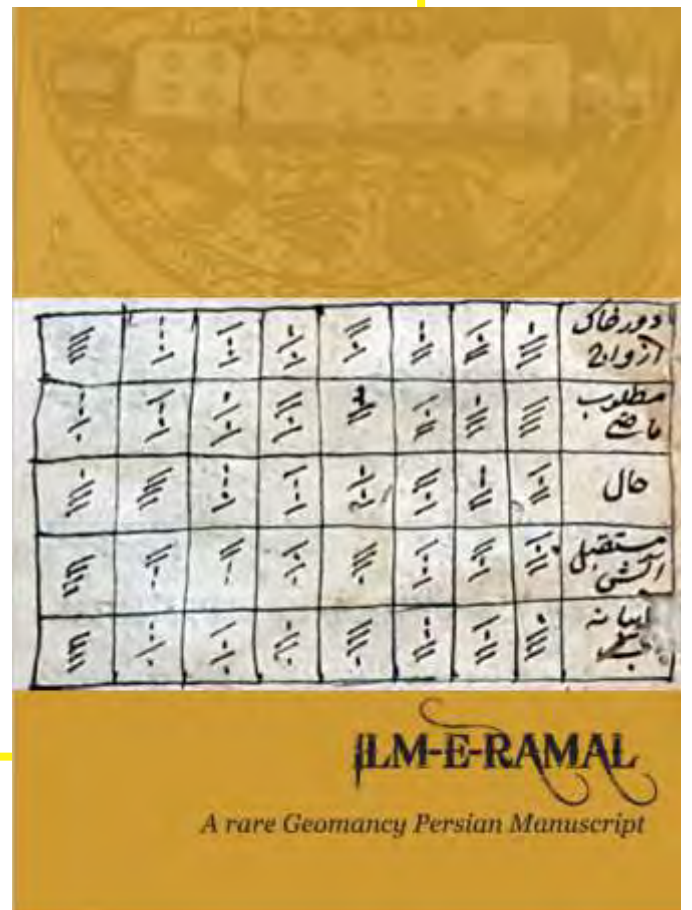 دور خاک
ازواج
مطلوب
ماضی
حال
مستقبل
ILM-E-RAMAL
A rare Geomancy Persian Manuscript